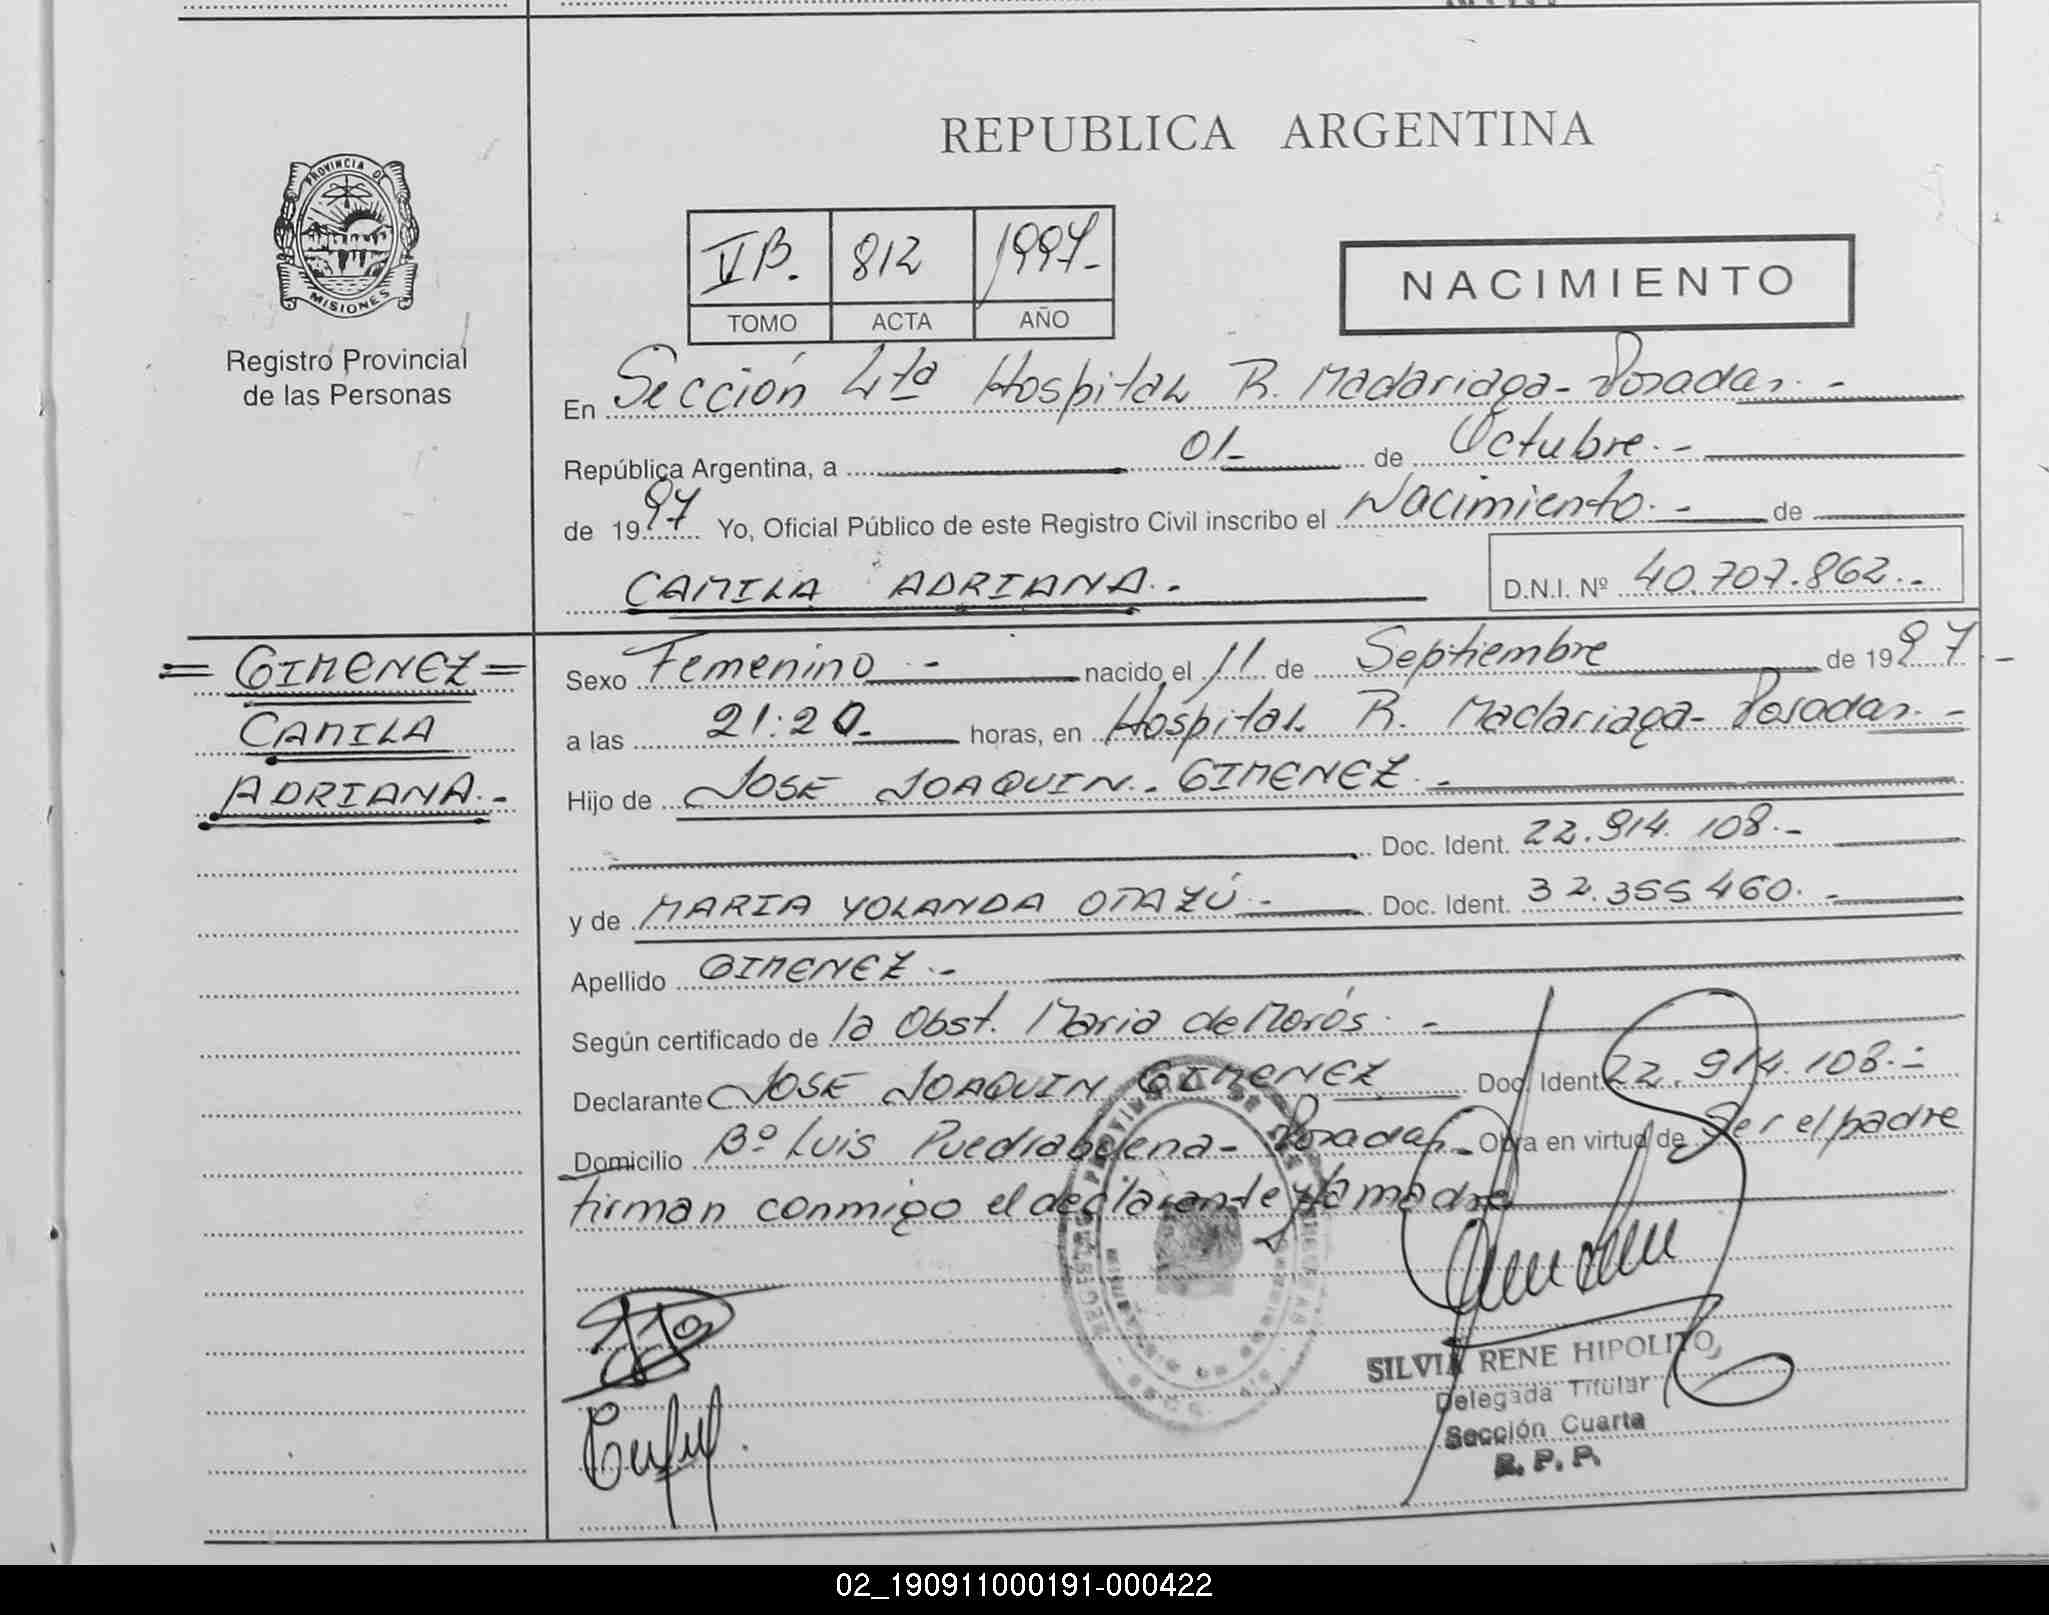 REPUBLICA ARGENTINA
PROVINCIA DE
MISIONES
Registro Provincial
de las Personas
VB. 812 1997-
TOMO ACTA AÑO
NACIMIENTO
En Sección 4ta Hospital R. Madariaga - Posadas. -
República Argentina, a 01- de Octubre. -
de 1997 Yo, Oficial Público de este Registro Civil inscribo el Nacimiento. - de
CAMILA ADRIANA. - D.N.I. Nº 40.707.862. -
= GIMENEZ =
CAMILA
ADRIANA. -
Sexo Femenino. - nacido el 11 de Septiembre de 1997 -
a las 21:20- horas, en Hospital R. Madariaga - Posadas. -
Hijo de JOSE JOAQUIN. GIMENEZ. -
Doc. Ident. 22.914.108. -
y de MARIA YOLANDA OTAZÚ. - Doc. Ident. 32.355.460. -
Apellido GIMENEZ. -
Según certificado de la Obst. Maria de Morós. -
Declarante JOSE JOAQUIN GIMENEZ Doc. Ident. 22.914.108. -
Domicilio Bº Luis - Posadas - Obra en virtud de Ser el padre
firman conmigo el declarante y la madre
SILVIA RENE HIPOLITO
Delegada Titular
Sección Cuarta
R. P. P.
02_190911000191-000422